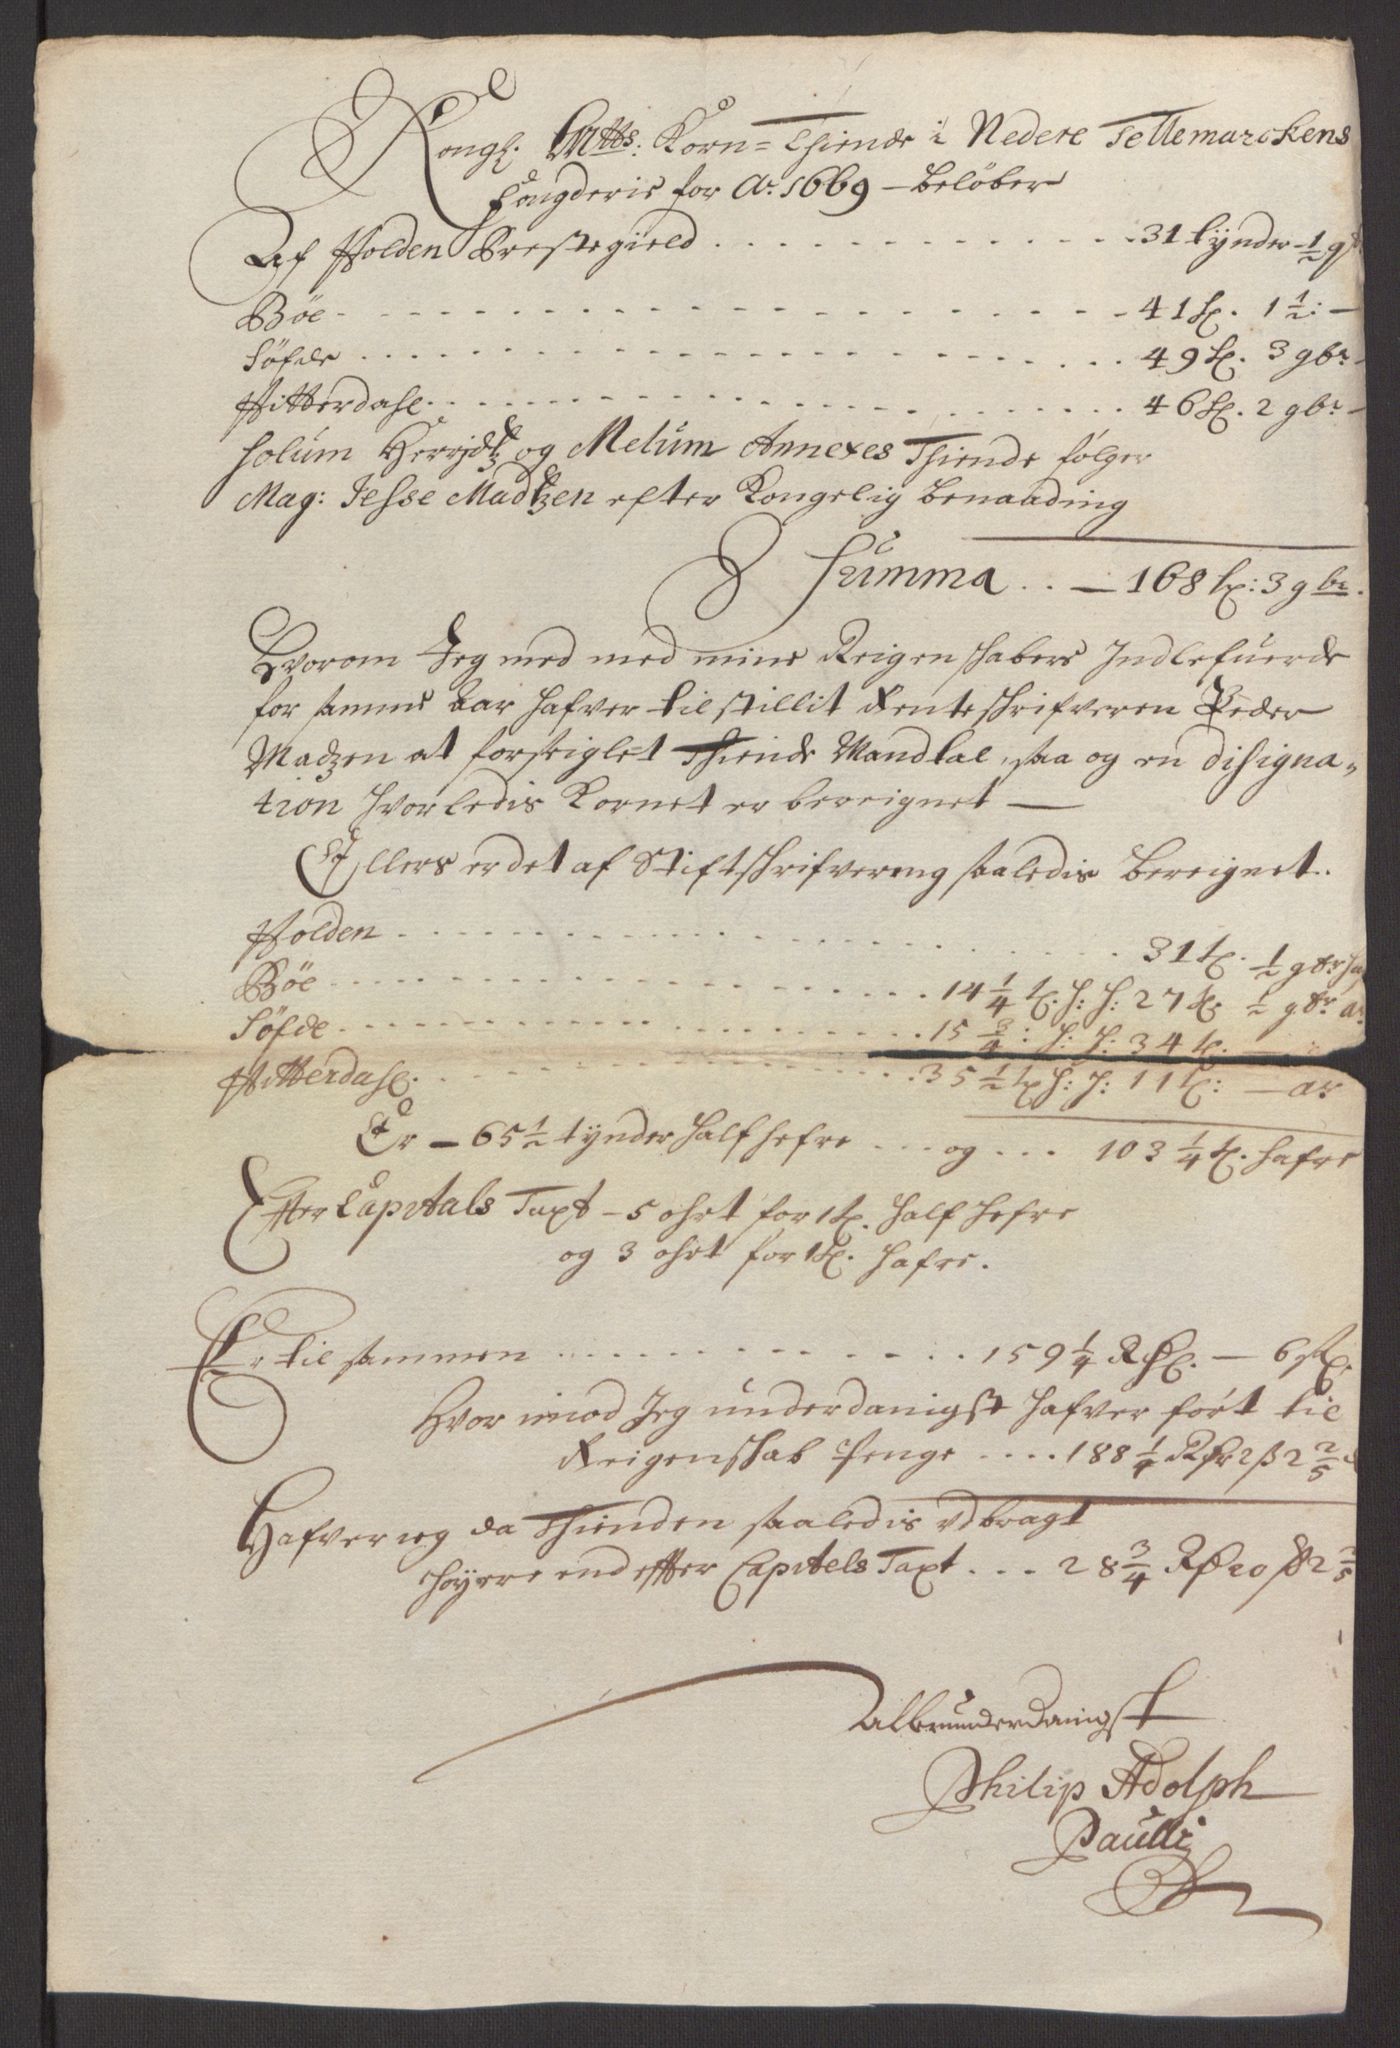 Kongl. Mtts: Korn=Thiende i Nedere Tellemarckens
Fougderie for Ao. 1669 – beløber
Af Holden Prestegield . . . . . . . . . . 31 tynder ½ g
Bøe . . . . . . . . . . 41 tr. 1 ½: –
Søfde . . . . . . . . . . 49 tr. 3 gbr –
Hitterdahl . . . . . . . . . . 46 tr. 2 gbr –
Solum Herridtz og Melum Annexes Thiende følger
Mag: Jesse Madtzen efter Kongelig benaading
Summa . . – 168 tr: 3 gbr.
Hvorom Jeg med med mine Reigenschabers Indlefuerde
for samme Aar hafver tilstillit Renteschrifveren Peder
Madzen at forseiglet Thiende Mandtal, saa og en disigna=
tion hvorledis Kornet er bereignet —
Ellers er det af Stiftschrifvereng saaledis bereignet.
Holden . . . . . . . . . . 31 tr. ½ gbr ha
Bøe . . . . . . . . . . 14 ¼ tr. h: h: 27 tr. ½ gbr ar
Søfde . . . . . . . . . . 15 ¾: h: h: 34 tr. —
Hitterdahl. . . . . . . . . . 35 ½ tr h: h: 11 tr: — ar
Er – 65 ½ tynder halfhefre . . . og . . . 103 ¼ tr. hafre
Efter Capitals Taxt – 5 ohrt for 1 tr. half hefre
og 3 ohrt for 1 tr. hafre.
Er til sammen . . . . . . . . . . 159 ¼ Rdl. — 6 sk.
Hvor imod Jeg underdanigst hafver ført til
Reigenschab Penge . . . . 188 ¼ Rdr 2 ß 2 2/5
Hafver ieg da Thienden saaledis udbragt
høyere end efter Capitels Taxt . . . 28 ¾ Rd 20 ß 2 2/5
Allerunderdanigst
Philip Adolph
Paulli